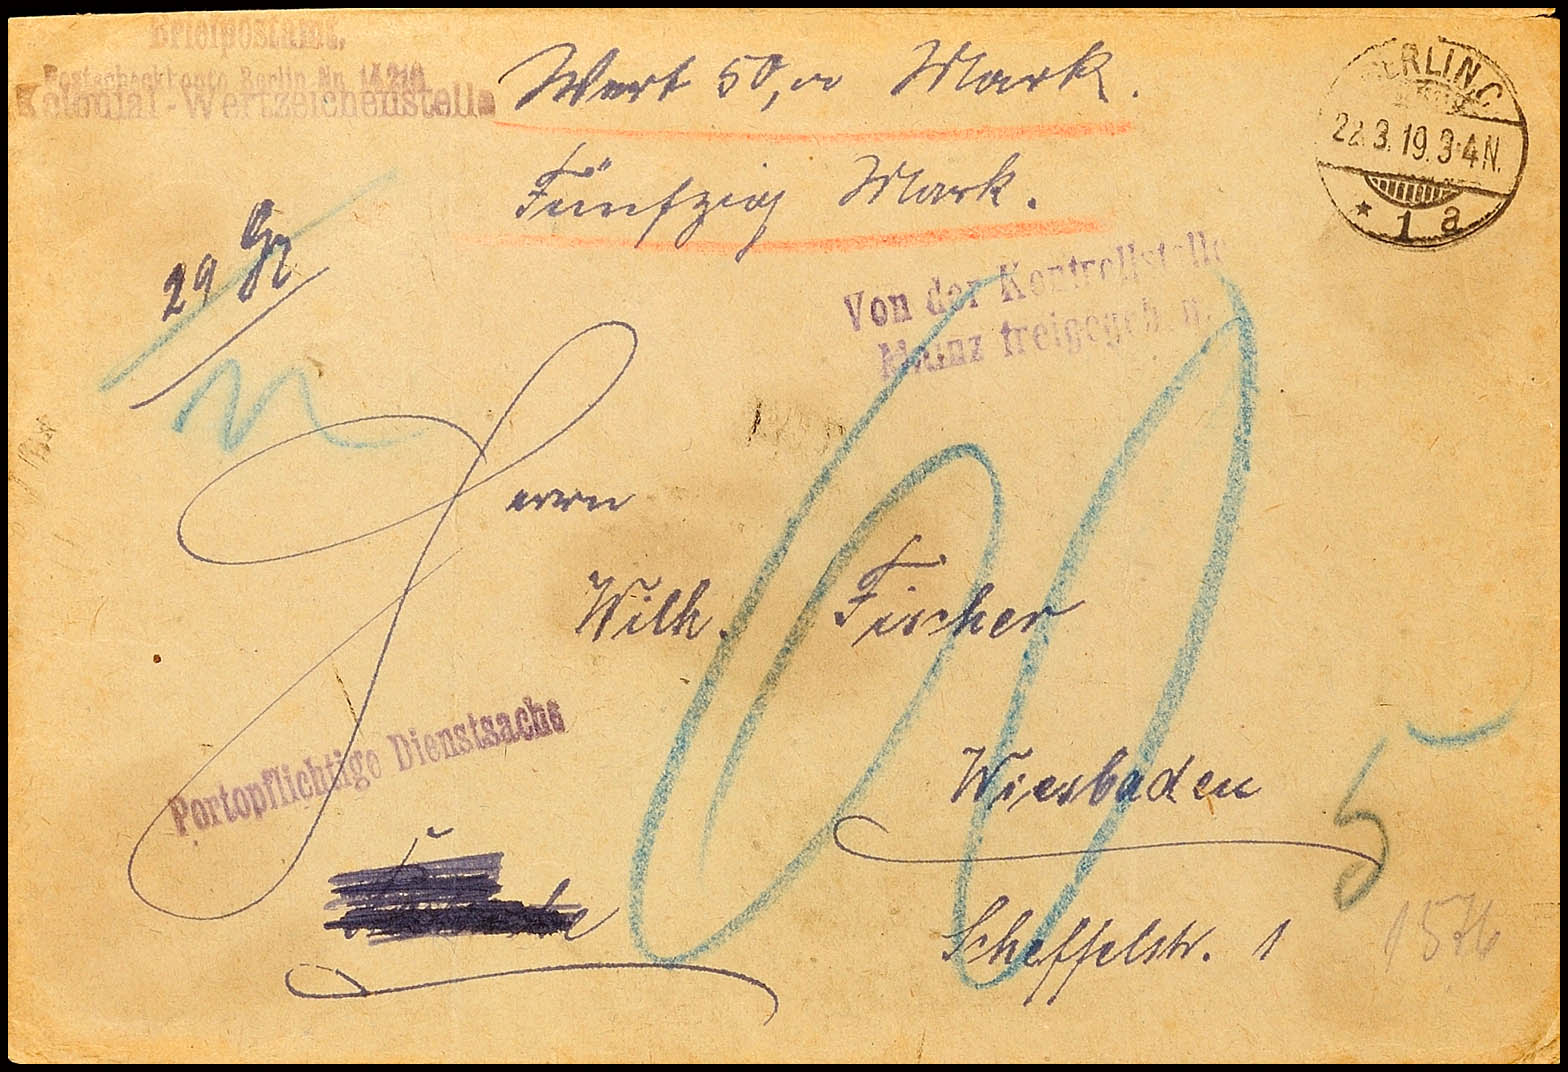 Briefpostamt.
Postscheckkonto Berlin Nr. 14210
Kolonial-Wertzeichenstelle
Wert 50,00 Mark.
Fünfzig Mark.
BERLIN.C.
22.3.19.3-4N.
* 1 a
29 Gr
Von der Kontrollstelle
Mainz freigegeben.
Herrn
Wilh. Fischer
60
Portopflichtige Dienstsache
Wiesbaden
5
Scheffelstr. 1
1576